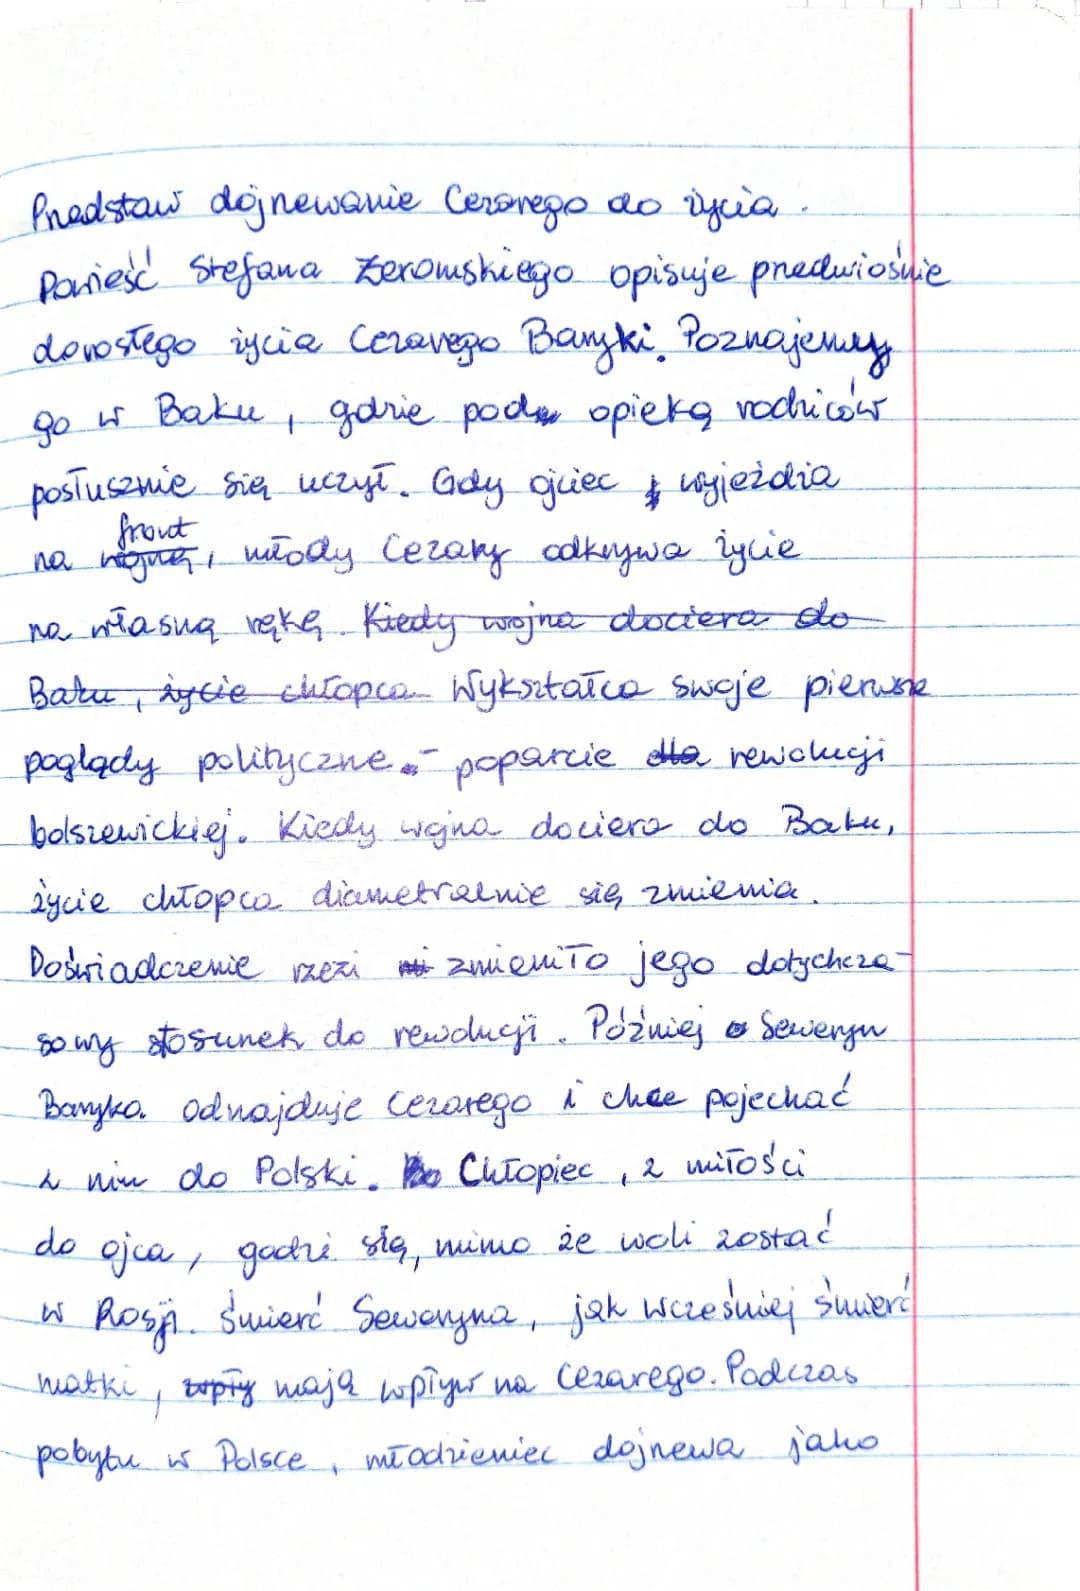 Przedstaw dojrzewanie Cezarego do życia.
Powieść Stefana Żeromskiego opisuje przedwiośnie
dorosłego życia Cezarego Baryki. Poznajemy
go w Baku, gdzie pod opieką rodziców
posłusznie się uczył. Gdy ojciec wyjeżdża
front
na wojnę, młody Cezary odkrywa życie
na własną rękę. Kiedy wojna dociera do
Baku, życie chłopca Wykształca swoje pierwsze
poglądy polityczne - poparcie dla rewolucji
bolszewickiej. Kiedy wojna dociera do Baku,
życie chłopca diametralnie się zmienia.
Doświadczenie rzezi zmieniło jego dotychcza-
sowy stosunek do rewolucji. Później Seweryn
Baryka odnajduje Cezarego i chce pojechać
z nim do Polski. Chłopiec, z miłości
do ojca, godzi się, mimo że woli zostać
w Rosji. Śmierć Seweryna, jak wcześniej śmierć
matki, wpły mają wpływ na Cezarego. Podczas
pobytu w Polsce, młodzieniec dojrzewa jako